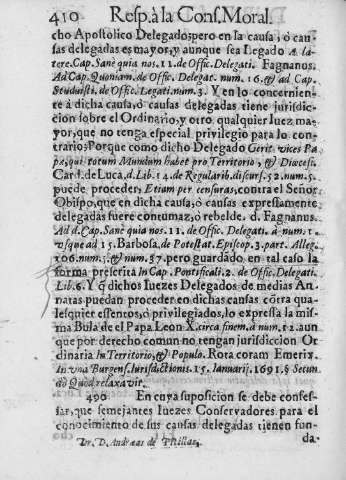 410 Resp. à la Cons. Moral.
cho Apostolico Delegado; pero en la causa, ò cau-
sas delegadas es mayor, y aunque sea Legado A la-
tere. Cap. Sanè quia nos. 11. de Offic. Delegati. Fagnanus.
Ad Cap. Quoniam. de Offic. Delegat. num. 16. & ad Cap.
Studuisti. de Offic. Legati. num. 3. Y en lo concernien-
te à dicha causa, ò causas delegadas tiene jurisdic-
cion sobre el Ordinario, y otro qualquier Iuez ma-
yor, que no tenga especial privilegio para lo con-
trario; Porque como dicho Delegado Gerit vices Pa-
pæ, qui totum Mundum habet pro Territorio, & Diœcesi.
Card. de Luca, d. Lib. 14. de Regularib. discurs. 52. num. 5.
puede proceder, Etiam per censuras, contra el Señor
Obispo, que en dicha causa, ò causas expressamente
delegadas fuere contumaz, ò rebelde. d. Fagnanus.
Ad d. Cap. Sanè quia nos. 11. de Offic. Delegati. à num. 1.
usque ad 15. Barbosa, de Potestat. Episcop. 3. part. Alleg.
106. num. 5. & num. §7. pero guardado en tal caso la
forma prescrita In Cap. Pontificali. 2. de Offic. Delegati.
Lib. 6. Y q̃ dichos Iuezes Delegados de medias An-
natas puedan proceder en dichas causas cõtra qua-
lesquier essentos, ò privilegiados, lo expressa la mis-
ma Bula de el Papa Leon X. circa finem. d. num. 12. aun
que por derecho comun no tengan jurisdiccion Or
dinaria In Territorio, & Populo. Rota coram Emerix.
In una Burgens. Iurisdictionis. 15. Ianuarij. 1691. § Secun
do Quod relaxavir.
490 En cuya suposicion se debe confes-
sar, que semejantes Iuezes Conservadores para el
conocimiento de sus causas delegadas tienen fun-
da-
Dr. D. Andreas de